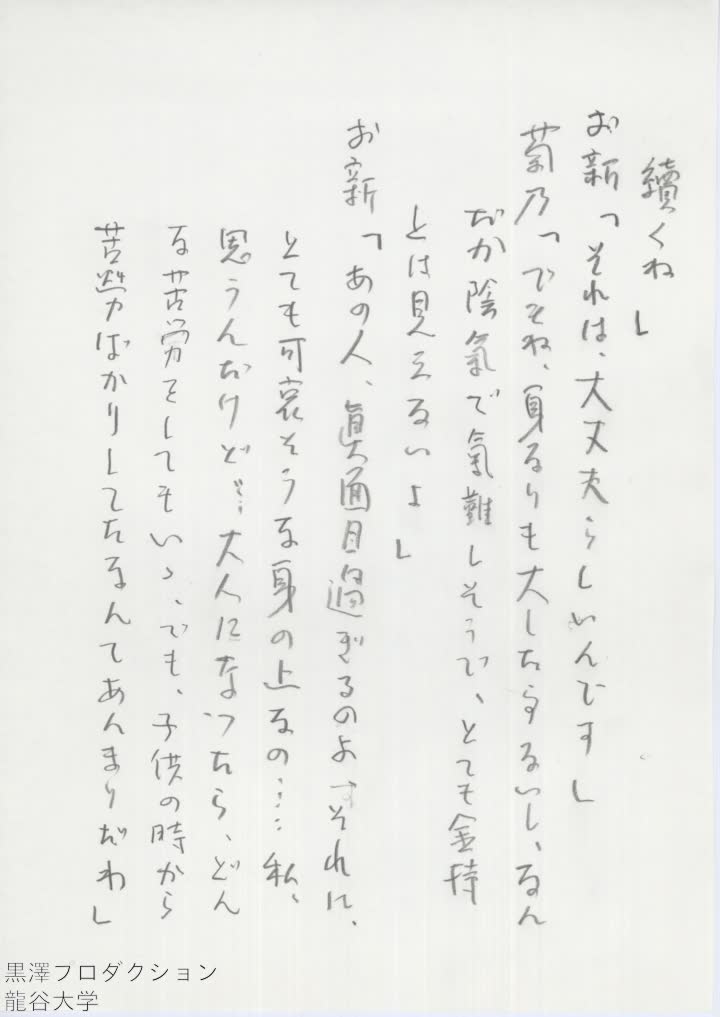 續くね」
お新「それは、大丈夫らしいんです」
菊乃「でもね、身なりも大した事ないし、なん
だか陰氣で氣難しそうで、とても金持
とは見えないよ」
お新「あの人、眞面目過ぎるのよ　それに、
とても可哀そうな身の上なの……私、
思うんだけど…大人になつたら、どん
な苦労をしてもいゝ、でも、子供の時から
苦勞ばかりしてたなんてあんまりだわ」
黒澤プロダクション
龍谷大学